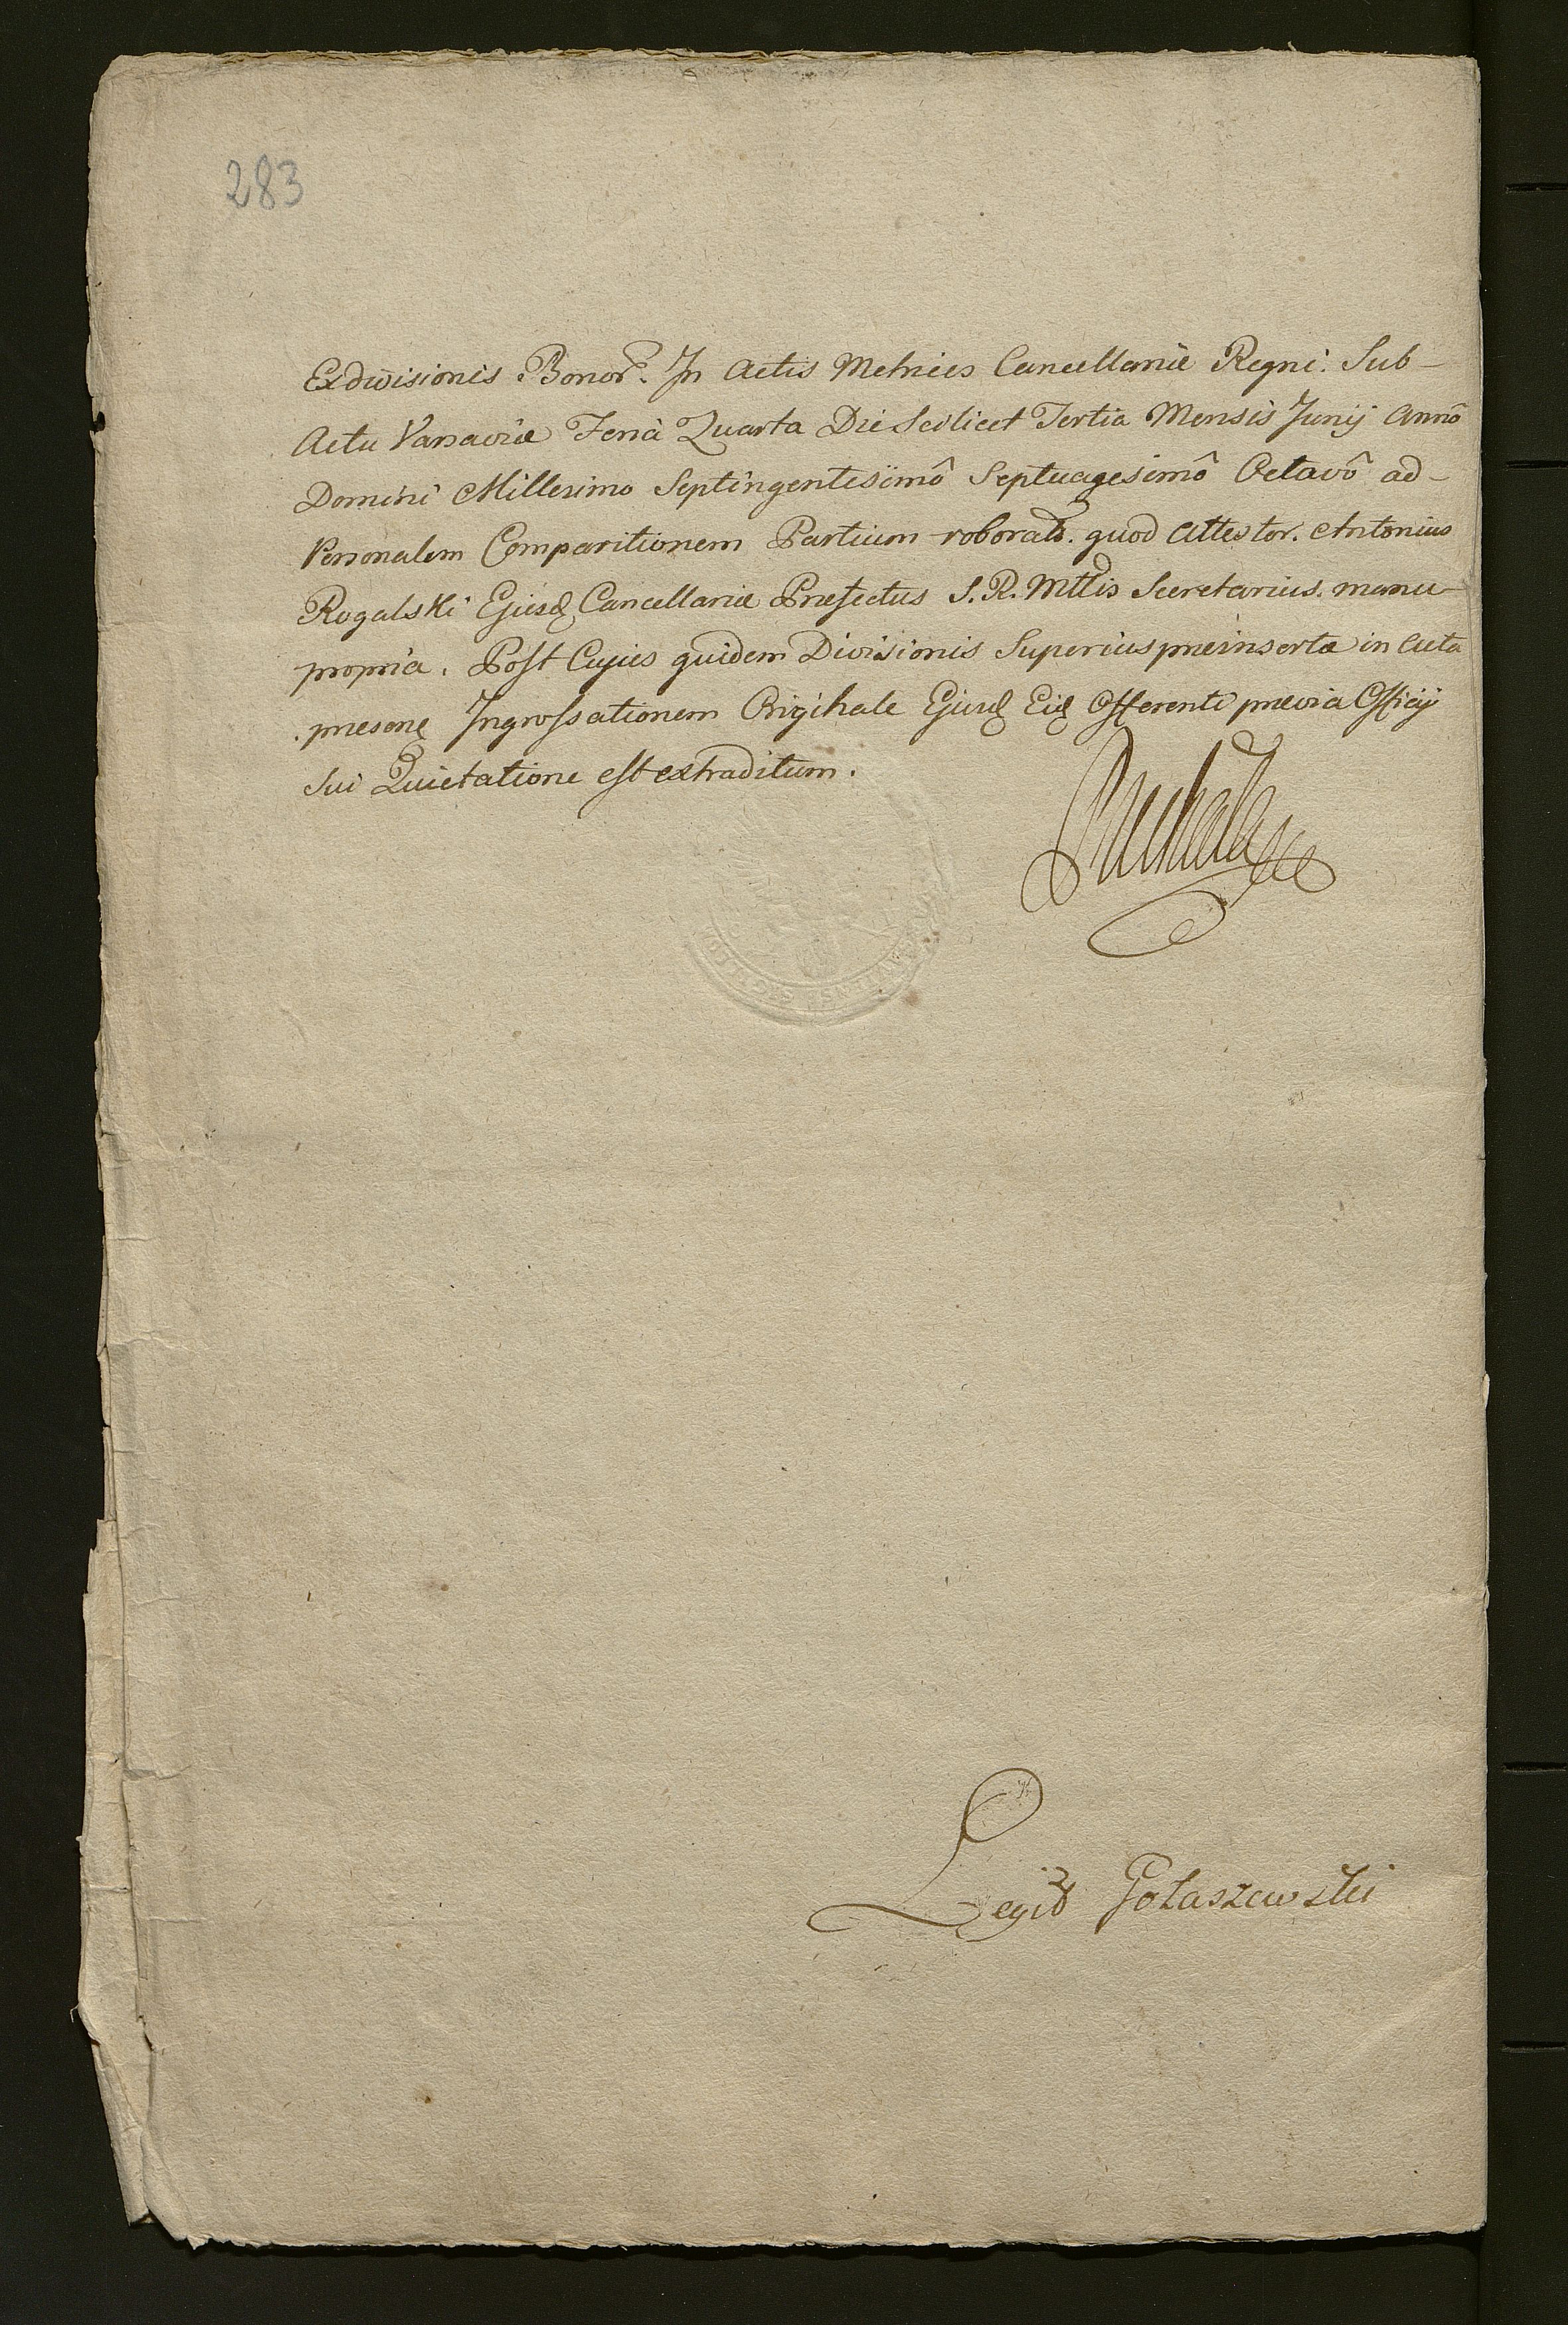 283
Exdivisionis Bonor. In Actis Metrices Cancellariæ Regni. Sub-
Actu Varsaviæ Feria Quarta Die Scilicet Tertia Mensis Junij Annô
Domini Millesimo Septingentesimô Septuagesimô Octavô ad-
Personalem Comparitionem Partium roborat. quod Attestor. Antonius
Rogalski Ejusq Cancellariæ Præfectus S. R. Mttis Secretarius. manu-
propria. Post Cujus quidem Divisionis Superius præinsertæ in Acta
præsenę Ingrossationem Originale Ejusq Eiq Offerenti prævia Officij
sui Quietatione est extraditum.
Legit Gołaszewski